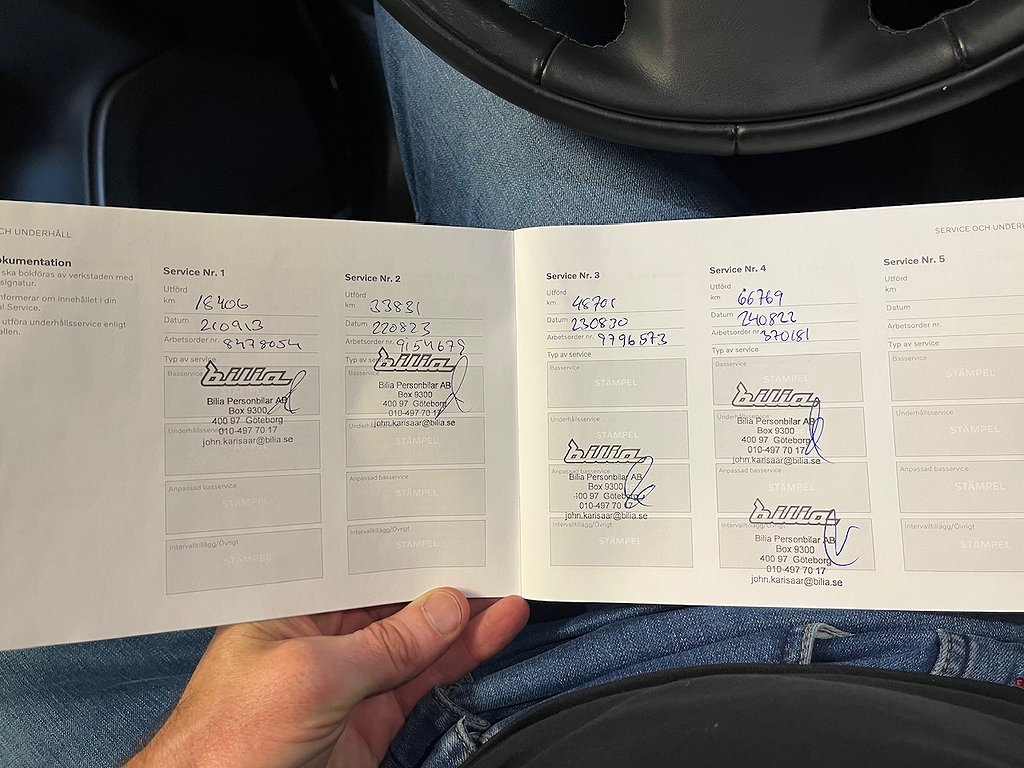 CH UNDERHÅLL
okumentation
ska bokföras av verkstaden med
signatur.
nformerar om innehållet i din
al Service.
utföra underhållsservice enligt
allen.
Service Nr. 1
Utförd
km 18406
Datum 210913
Arbetsorder nr. 8478054
Typ av service
Basservice
bilia
Bilia Personbilar AB
Box 9300
400 97 Göteborg
010-497 70 17
john.karisaar@bilia.se
Underhållsservice
STÄMPEL
Anpassad basservice
STÄMPEL
Intervalltillägg/Övrigt
STÄMPEL
Service Nr. 2
Utförd
km 33831
Datum 220823
Arbetsorder nr. 9154679
Typ av service
bilia
Bilia Personbilar AB
Box 9300
400 97 Göteborg
010-497 70 17
john.karisaar@bilia.se
STÄMPEL
Anpassad basservice
STÄMPEL
Intervalltillägg/Övrigt
STÄMPEL
Service Nr. 3
Utförd
km 48701
Datum 230830
Arbetsorder nr. 9796573
Typ av service
Basservice
STÄMPEL
Underhållsservice
STÄMPEL
bilia
Anpassad basservice
Bilia Personbilar AB
Box 9300
400 97 Göteborg
010-497 70 17
john.karisaar@bilia.se
Intervalltillägg/Övrigt
STÄMPEL
SERVICE OCH UNDERH
Service Nr. 4
Utförd
km 66769
Datum 240822
Arbetsorder nr. 370181
Typ av service
Basservice
STÄMPEL
bilia
Underhållsservice
Bilia Personbilar AB
Box 9300
400 97 Göteborg
010-497 70 17
john.karisaar@bilia.se
Anpassad basservice
STÄMPEL
bilia
Intervalltillägg/Övrigt
Bilia Personbilar AB
Box 9300
400 97 Göteborg
010-497 70 17
john.karisaar@bilia.se
Service Nr. 5
Utförd
km
Datum
Arbetsorder nr.
Typ av service
Basservice
STÄMPEL
Underhållsservice
STÄMPEL
Anpassad basservice
STÄMPEL
Intervalltillägg/Övrigt
STÄMPEL